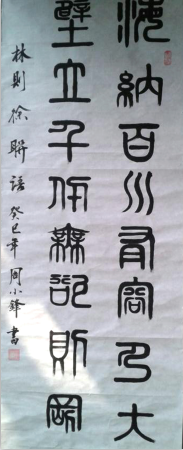 海纳百川有容乃大
壁立千仞無欲則剛
林则徐聯语癸巳年周小鋒書